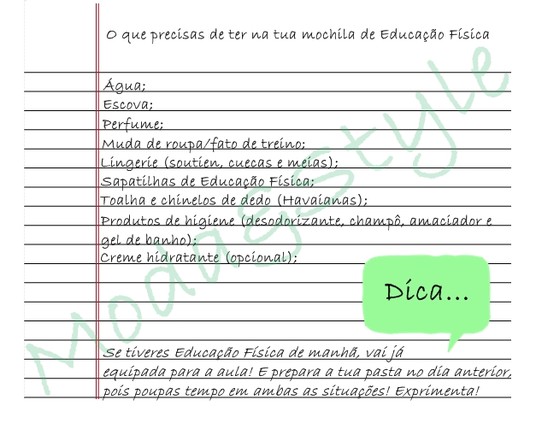 O que precisas de ter na tua mochila de Educação Física
Água;
Escova;
Perfume;
Muda de roupa/fato de treino;
Lingerie (soutien, cuecas e meias);
Sapatilhas de Educação Física;
Toalha e chinelos de dedo (Havaianas);
Produtos de higiene (desodorizante, champô, amaciador e
gel de banho);
Creme hidratante (opcional);
Dica...
Se tiveres Educação Física de manhã, vai já
equipada para a aula! E prepara a tua pasta no dia anterior,
pois poupas tempo em ambas as situações! Exprimenta!
Moda&Style